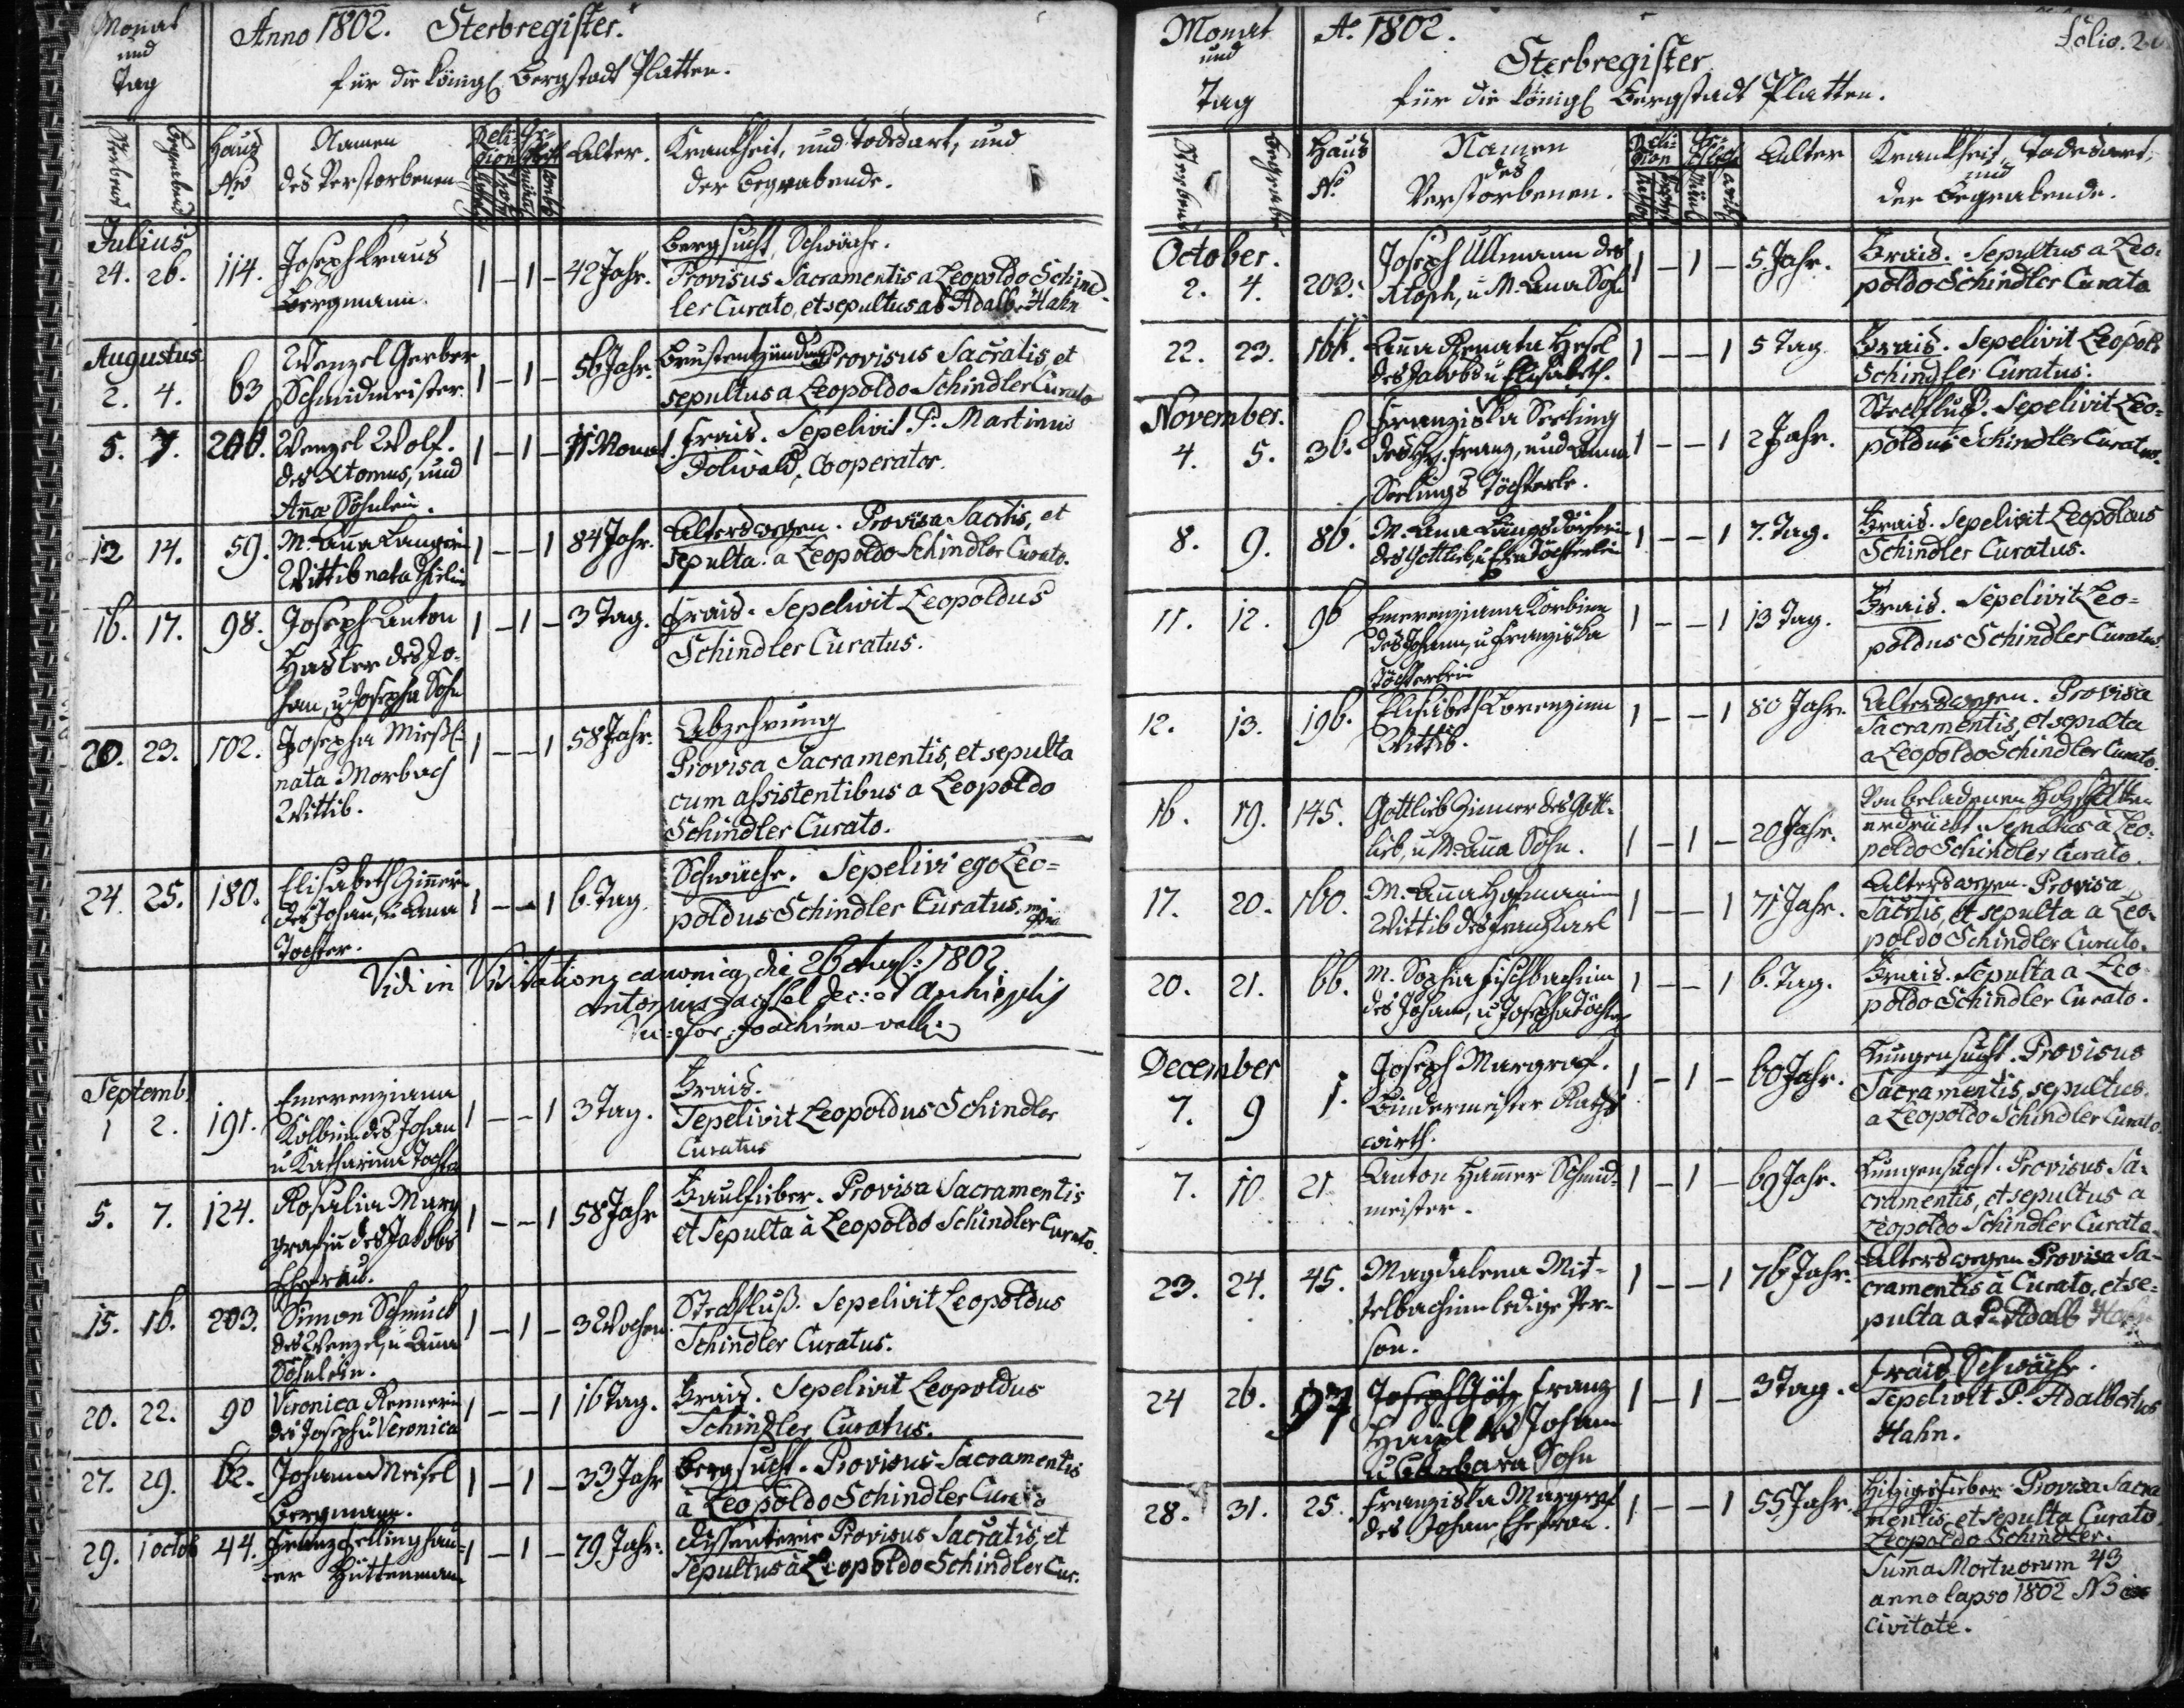 Monat
und
Tag
Anno 1802. Sterbregister.
für die königl Bergstadt Platten.
Sterbend
Begrabend
Haus
Nro
Namen
des Verstorbenen
Reli-
gion
Alter.
Krankheit, und Todesart, und
der Begrabende.
Julius
24. 26. 114. Joseph Kraus
Bergmann.
1 – 1 – 42 Jahr.
Bergsucht, Schwäche.
Provisus Sacramentis a Leopoldo Schind-
ler Curato, et sepultus ab Adalb. Hahn
Augustus
2. 4. 63 Wenzel Gerber
Schmidmeister.
1 – 1 – 56 Jahr.
Brustentzündung Provisus Sacratis et
sepultus a Leopoldo Schindler Curato
5. 7. 206. Wenzel Wolf.
des, und
Aña Söhnlein.
1 – 1 – 11 Monat.
Frais. Sepelivit P. Martinus
Poliwald, Cooperator.
12 14. 59. M. Aña Langerin
Wittib nata
1 – – 1 84 Jahr.
Alterswegen. Provisa Sacrtis, et
sepulta a Leopoldo Schindler Curato.
16. 17. 98. Joseph Anton
Hasler des Jo-
han, u Josepha Sohn
1 – 1 – 3 Tag.
Frais. Sepelivit Leopoldus
Schindler Curatus.
20. 23. 102. Josepha
nata Morbach
Wittib.
1 – – 1 58 Jahr.
Abzehrung
Provisa Sacramentis, et sepulta
cum assistentibus a Leopoldo
Schindler Curato.
24. 25. 180. Elisabeth Zimerin
des Johan, u Anna
Tochter.
1 – – 1 6. Tag
Schwäche. Sepelivi ego Leo=
poldus Schindler Curatus. mpia
Vidi in Visitatione canonica die 26 Aug: 1802
Antonius
Joachimo-vall:
Septemb.
1 2. 191. Emerenziana
Kolbin des Johan
u Katharina Tochter
1 – – 1 3 Tag.
Frais.
Sepelivit Leopoldus Schindler
Curatus
5. 7. 124. Rosalia Marg
grafin des Jakobs
Ehefrau.
1 – – 1 58 Jahr
Faulfieber. Provisa Sacramentis
et Sepulta à Leopoldo Schindler Curato.
15. 16. 203. Simon Schmuck
des Wenzel, u Anna
Söhnlein.
1 – 1 – 3 Wochen.
Steckfluß. Sepelivit Leopoldus
Schindler Curatus.
20. 22. 90 Veronica Rennerin
des Joseph u Veronica
1 – – 1 16 Tag.
Frais. Sepelivit Leopoldus
Schindler Curatus.
27. 29. 62. Johann Meisel
Bergmann.
1 – 1 – 33 Jahr
Bergsucht. Provisus Sacramentis
à Leopoldo Schindler Curato
29. 1 octob 44. Franz Hellinghau-
er Hüttenmann
1 – 1 – 79 Jahr.
Dissenterie Provisus Sacratis, et
Sepultus à Leopoldo Schindler Cur.
Monat
und
Tag
A. 1802.
Sterbregister
für die königl Bergstadt Platten.
Folio. 26
Sterbend
Begrabe
Haus
N.
Namen
des
Verstorbenen.
Reli-
gion
Alter
Krankheit, Todesart,
und
der Begrabende.
October.
2. 4. 202. Joseph Ullmann des
Xtoph, u M. Anna Sohn
1 – 1 – 5 Jahr.
Frais. Sepultus a Leo-
poldo Schindler Curato
22. 23. 166. Aña Renata Hesel
des Jakobs u Elisabeth.
1 – – 1 5 Tag
Frais. Sepelivit Leopold
Schindler Curatus.
November.
4. 5. 36. Franziska Seeling
des Hr. Franz, und Anna
Seelings Töchterle.
1 – – 1 2 Jahr.
Steckfluß. Sepelivit Leo=
poldus Schindler Curatus.
8. 9. 86. M. Anna Lungsdörferin
des Gottlieb, u Eva Töchterlein
1 – – 1 7. Tag.
Frais. Sepelivit Leopoldus
Schindler Curatus.
11. 12. 96 Emerenziana Korbinn
des Johann, u Franziska
Töchterlein
1 – – 1 13 Tag.
Frais. Sepelivit Leo=
poldus Schindler Curatus.
12. 13. 196. Elisabeth Lorenzinn
Wittib.
1 – – 1 80 Jahr.
Alterswegen. Provisa
Sacramentis, et sepulta
a Leopoldo Schindler Curato.
16. 19. 145. Gottlieb Zimer des Gott-
lieb, u M. Aña Sohn.
1 – 1 – 20 Jahr.
Von beladenen Holzschlitten
erdrückt. Sepultus à Leo-
poldo Schindler Curato.
17. 20. 160. M. Aña Hofmanin
Wittib des Franz Karl
1 – – 1 71 Jahr.
Alterswegen. Provisa
Sacrtis, et sepulta a Leo-
poldo Schindler Curato.
20. 21. 66. M. Sophia Fischbachinn
des Johann, u Josepha Tochter
1 – – 1 6. Tag.
Frais. Sepulta a Leo-
poldo Schindler Curato.
December
7. 9 1. Joseph Margraf.
Bindermeister Raths
wirth.
1 – 1 – 60 Jahr.
Lungensucht. Provisus
Sacramentis, sepultus
a Leopoldo Schindler Curato.
7. 10. 21 Anton Hamer Schmid-
meister.
1 – 1 – 69 Jahr.
Lungensucht. Provisus Sa-
cramentis, et sepultus a
Leopoldo Schindler Curato
23. 24. 45. Magdalena Mit-
telbachinn ledige Per-
son.
1 – – 1 76 Jahr.
Alterswegen Provisa Sa-
cramentis à Curato, et se-
pulta a P. Adalb Hahn
24 26. 97 Joseph Götz Franz
Hanzl des Johann
u Barbara Sohn
1 – 1 – 3 Tag.
Frais, Schwäche.
Sepelivit P. Adalbertus
Hahn.
28. 31. 25. Franziska Margraf
des Johan Ehefrau.
1 – – 1 55 Jahr.
Hitzigesfieber Provisa Sacra
mentis, et sepulta Curato
Leopoldo Schindler.
Suma Mortuorum 43
anno lapso 1802 NB in
Civitate.